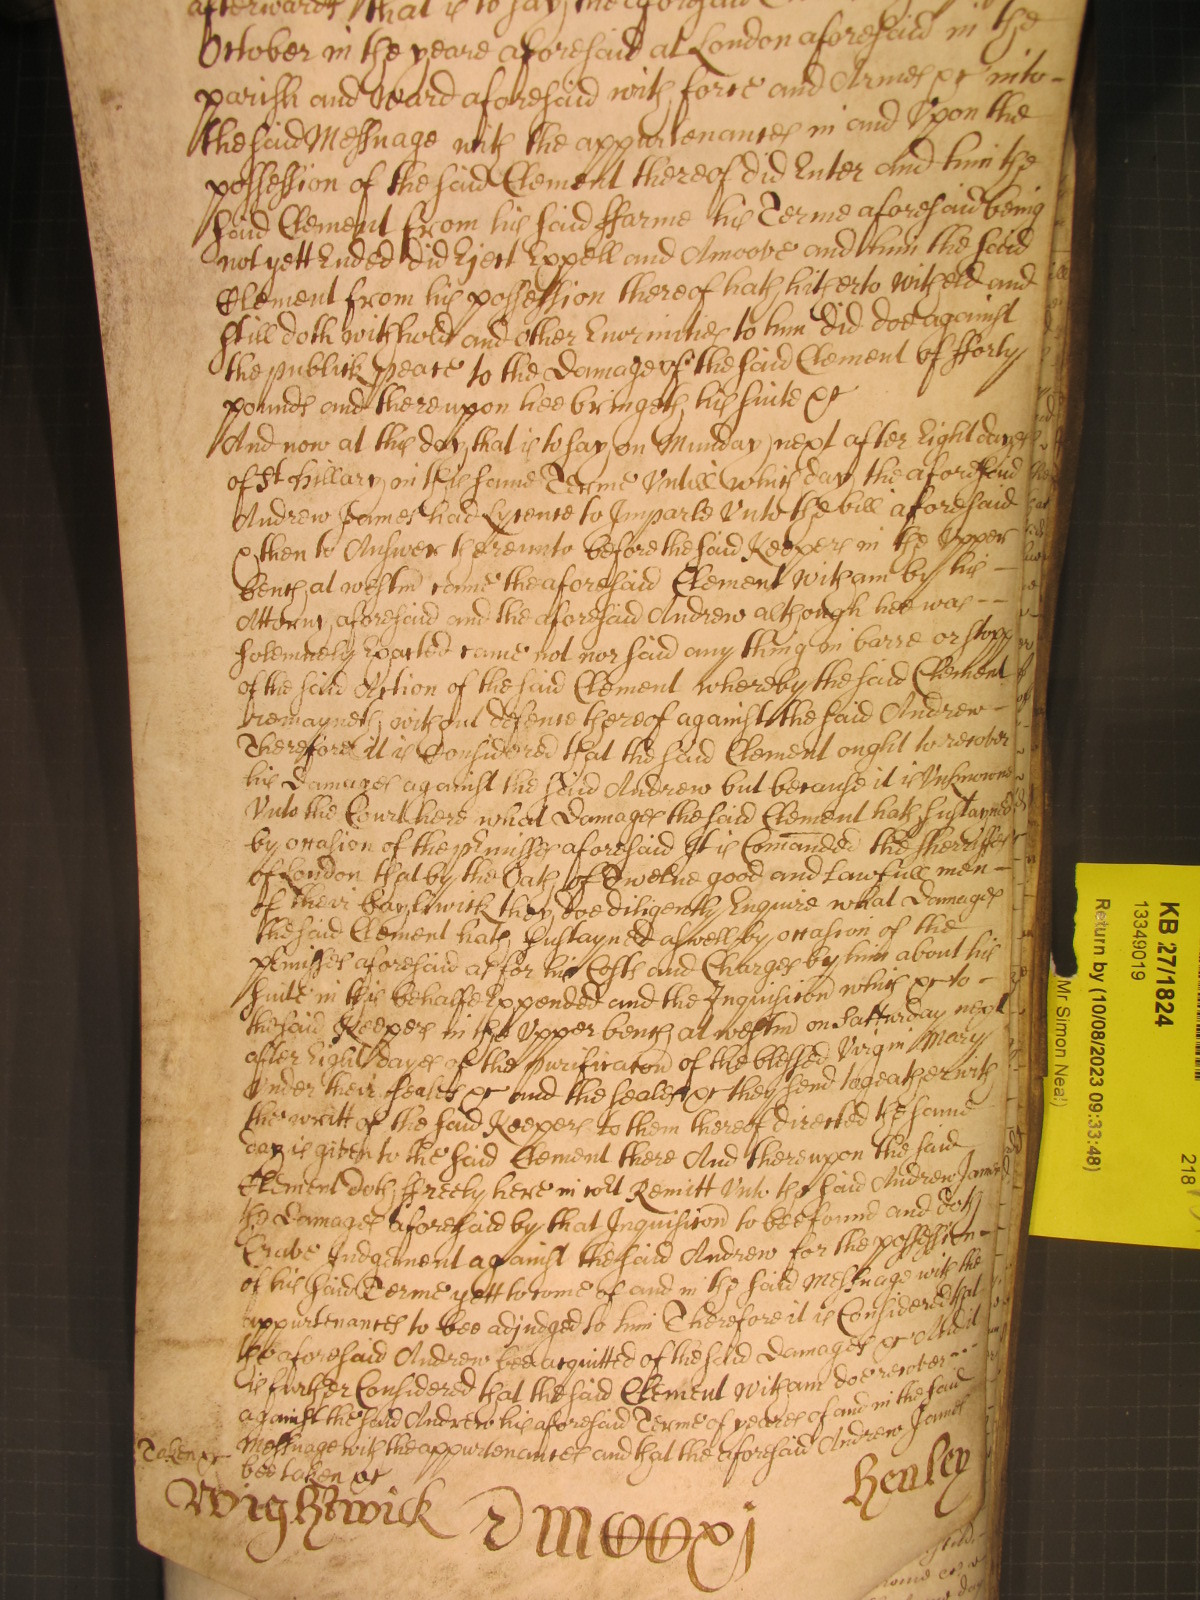 afterwards that is to say the aforesaid
October in the yeare aforesaid at London aforesaid in the
parish and Ward aforesaid with force and Armes &c into
the said Messuage with the appurtenances in and Upon the
possession of the said Clement thereof did Enter and him the
said Clement from his said ffarme his Terme aforesaid being
not yett Ended did Eject Expell and Amoove and him the said
Clement from his possession thereof hath hitherto witheld and
still doth withhold and other Enormities to him did doe against
the publick peace to the Damage of the said Clement of fforty
pounds and thereupon hee bringeth his suite &c
And now at this day that is to say on Munday next after Eight dayes
of St Hillary in this same Terme Untill which day the aforesaid
Andrew James had Lycence to Imparle Unto the bill aforesaid
& then to Answer thereunto before the said Keepers in the Upper
bench at Westm came the aforesaid Clement Witham by his
Attorny aforesaid and the aforesaid Andrew although hee was
solemnely Exacted came not nor said any thing in barre or stopp
of the said Action of the said Clement whereby the said Clement
remayneth without defence thereof against the said Andrew
Therefore it is Considered that the said Clement ought to recover
his Damages against the said Andrew but because it is Unknowne
Unto the Court here what Damages the said Clement hath sustayned
by occasion of the pmisses aforesaid It is Comanded the Sheriffes
of London that by the Oath of Twelve good and Lawfull men
of their Bayliwick they doe diligently Enquire what Damages
the said Clement hath sustayned aswell by occasion of the
pmisses aforesaid as for his Costs and Charges by him about his
suite in this behalfe Expended and the Inquisicon which &c to
the said Keepers in the Upper bench at Westm on Satturday next
after Eight dayes of the purificacon of the blessed Virgin Mary
Under their seales &c and the seales &c they send togeather with
the writt of the said Keepers to them thereof directed the same
day is given to the said Clement there And thereupon the said
Clement doth ffreely here in cort Remitt Unto the said Andrew James
the Damages aforesaid by that Inquisicon to bee found and doth
Crave Judgement against the said Andrew for the possession
of his said Terme yett to come of and in the said Messuage with the
appurtenances to bee adjudged to him Therefore it is Considered that
the aforesaid Andrew bee acquitted of the said Damages &c And it
is further Considered that the said Clement Witham doe recover
against the said Andrew his aforesaid Terme of yeares of and in the said
Messuage with the appurtenances and that the aforesaid Andrew James
Taken &c
bee taken &c
Wightwick
Henley
KB 27/1824
13349019
Return by (10/08/2023 09:33:48)
Mr Simon Neal)
218